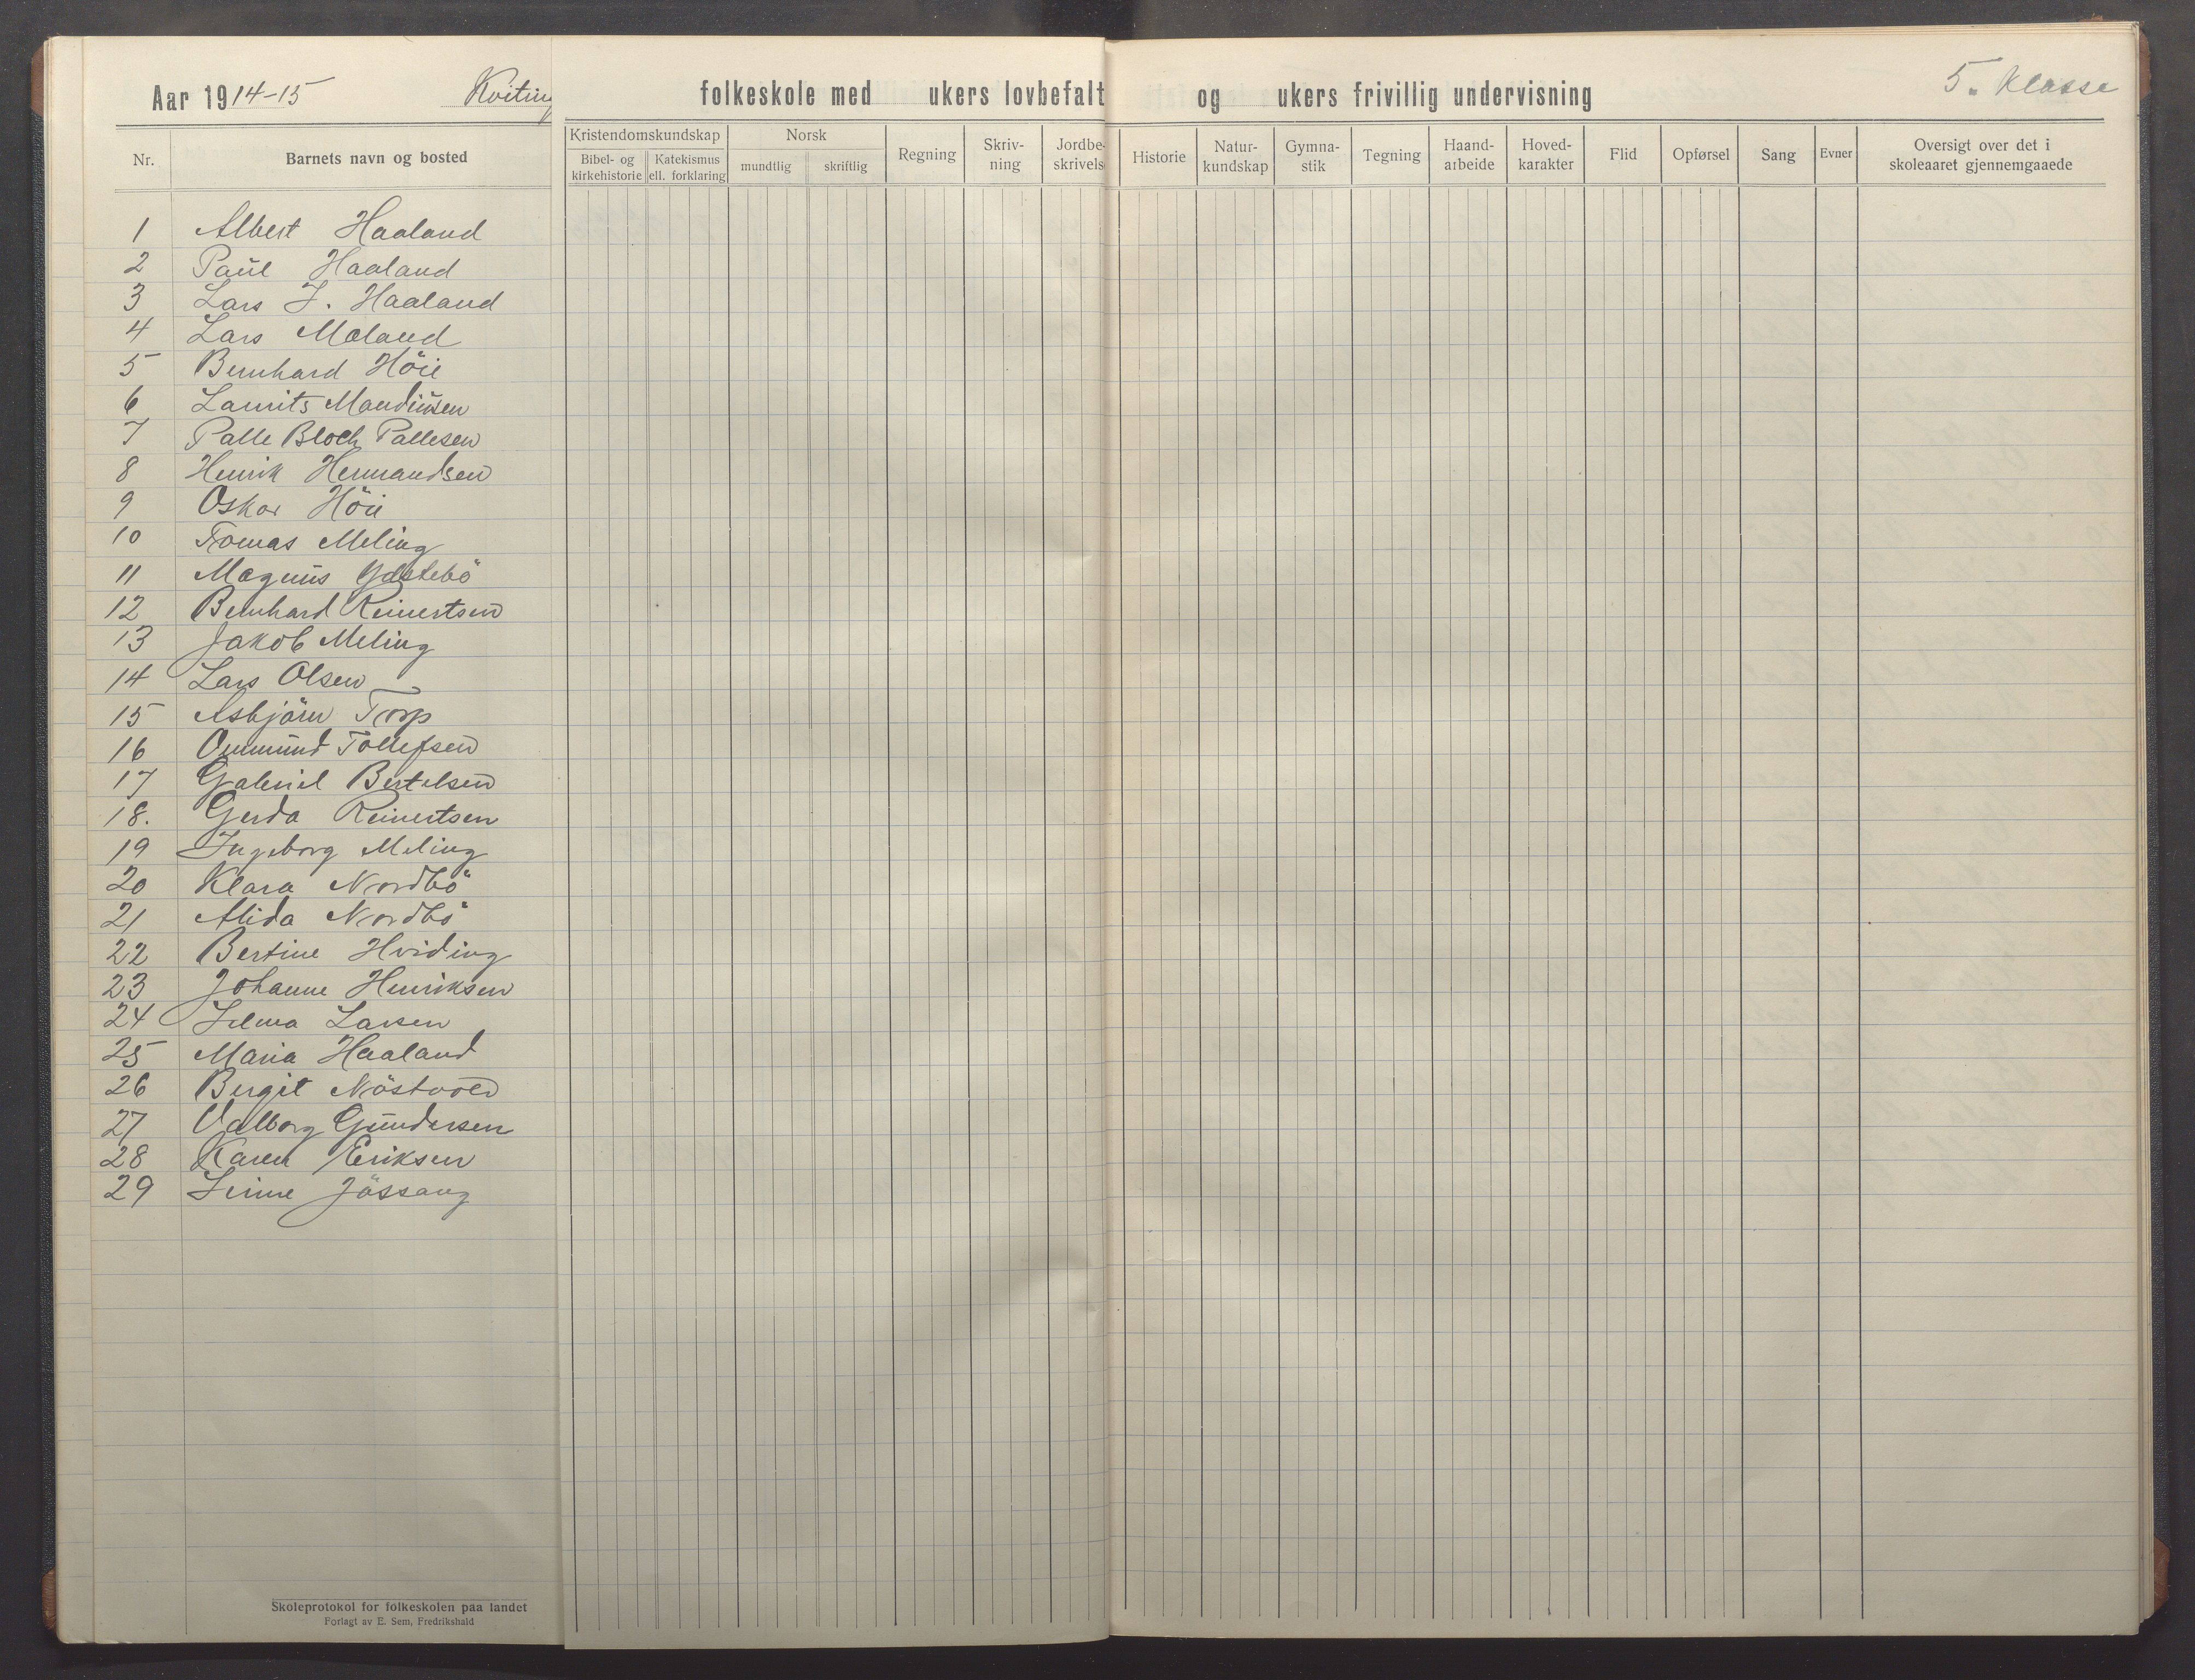 Aar 1914-15 Kviting folkeskole med ukers lovbefalt og ukers frivillig undervisning 5. Klasse
Nr. Barnets navn og bosted Kristendomskundskap Bibel- og kirkehistorie Katekismus ell. forklaring Norsk mundtlig skriftlig Regning Skriv-ning Jordbe-skrivels Historie Natur-kundskap Gymna-stik Tegning Haand-arbeide Hoved-karakter Flid Opførsel Sang Evner Oversigt over det i skoleaaret gjennemgaaede
1 Albert Haaland
2 Paul Haaland
3 Lars J. Haaland
4 Lars Maland
5 Bernhard Höie
6 Laurits Maudinsen
7 Palle Bloch Pallesen
8 Henrik Hermandsen
9 Oskar Höie
10 Tomas Meling
11 Magnus Ydstebö
12 Bernhard Reinertsen
13 Jakob Meling
14 Lars Olsen
15 Asbjörn Torp
16 Ommund Tollefsen
17 Gabriel Bertelsen
18. Gerda Reinertsen
19 Ingeborg Meling
20 Klara Nordbö
21 Alida Nordbö
22 Bertine Hviding
23 Johanne Henriksen
24 Selma Larsen
25 Maria Haaland
26 Bergit Nöstvold
27 Valborg Gundersen
28 Karen Eriksen
29 Jössang
Skoleprotokol for folkeskolen paa landet
Forlagt av E. Sem, Fredrikshald